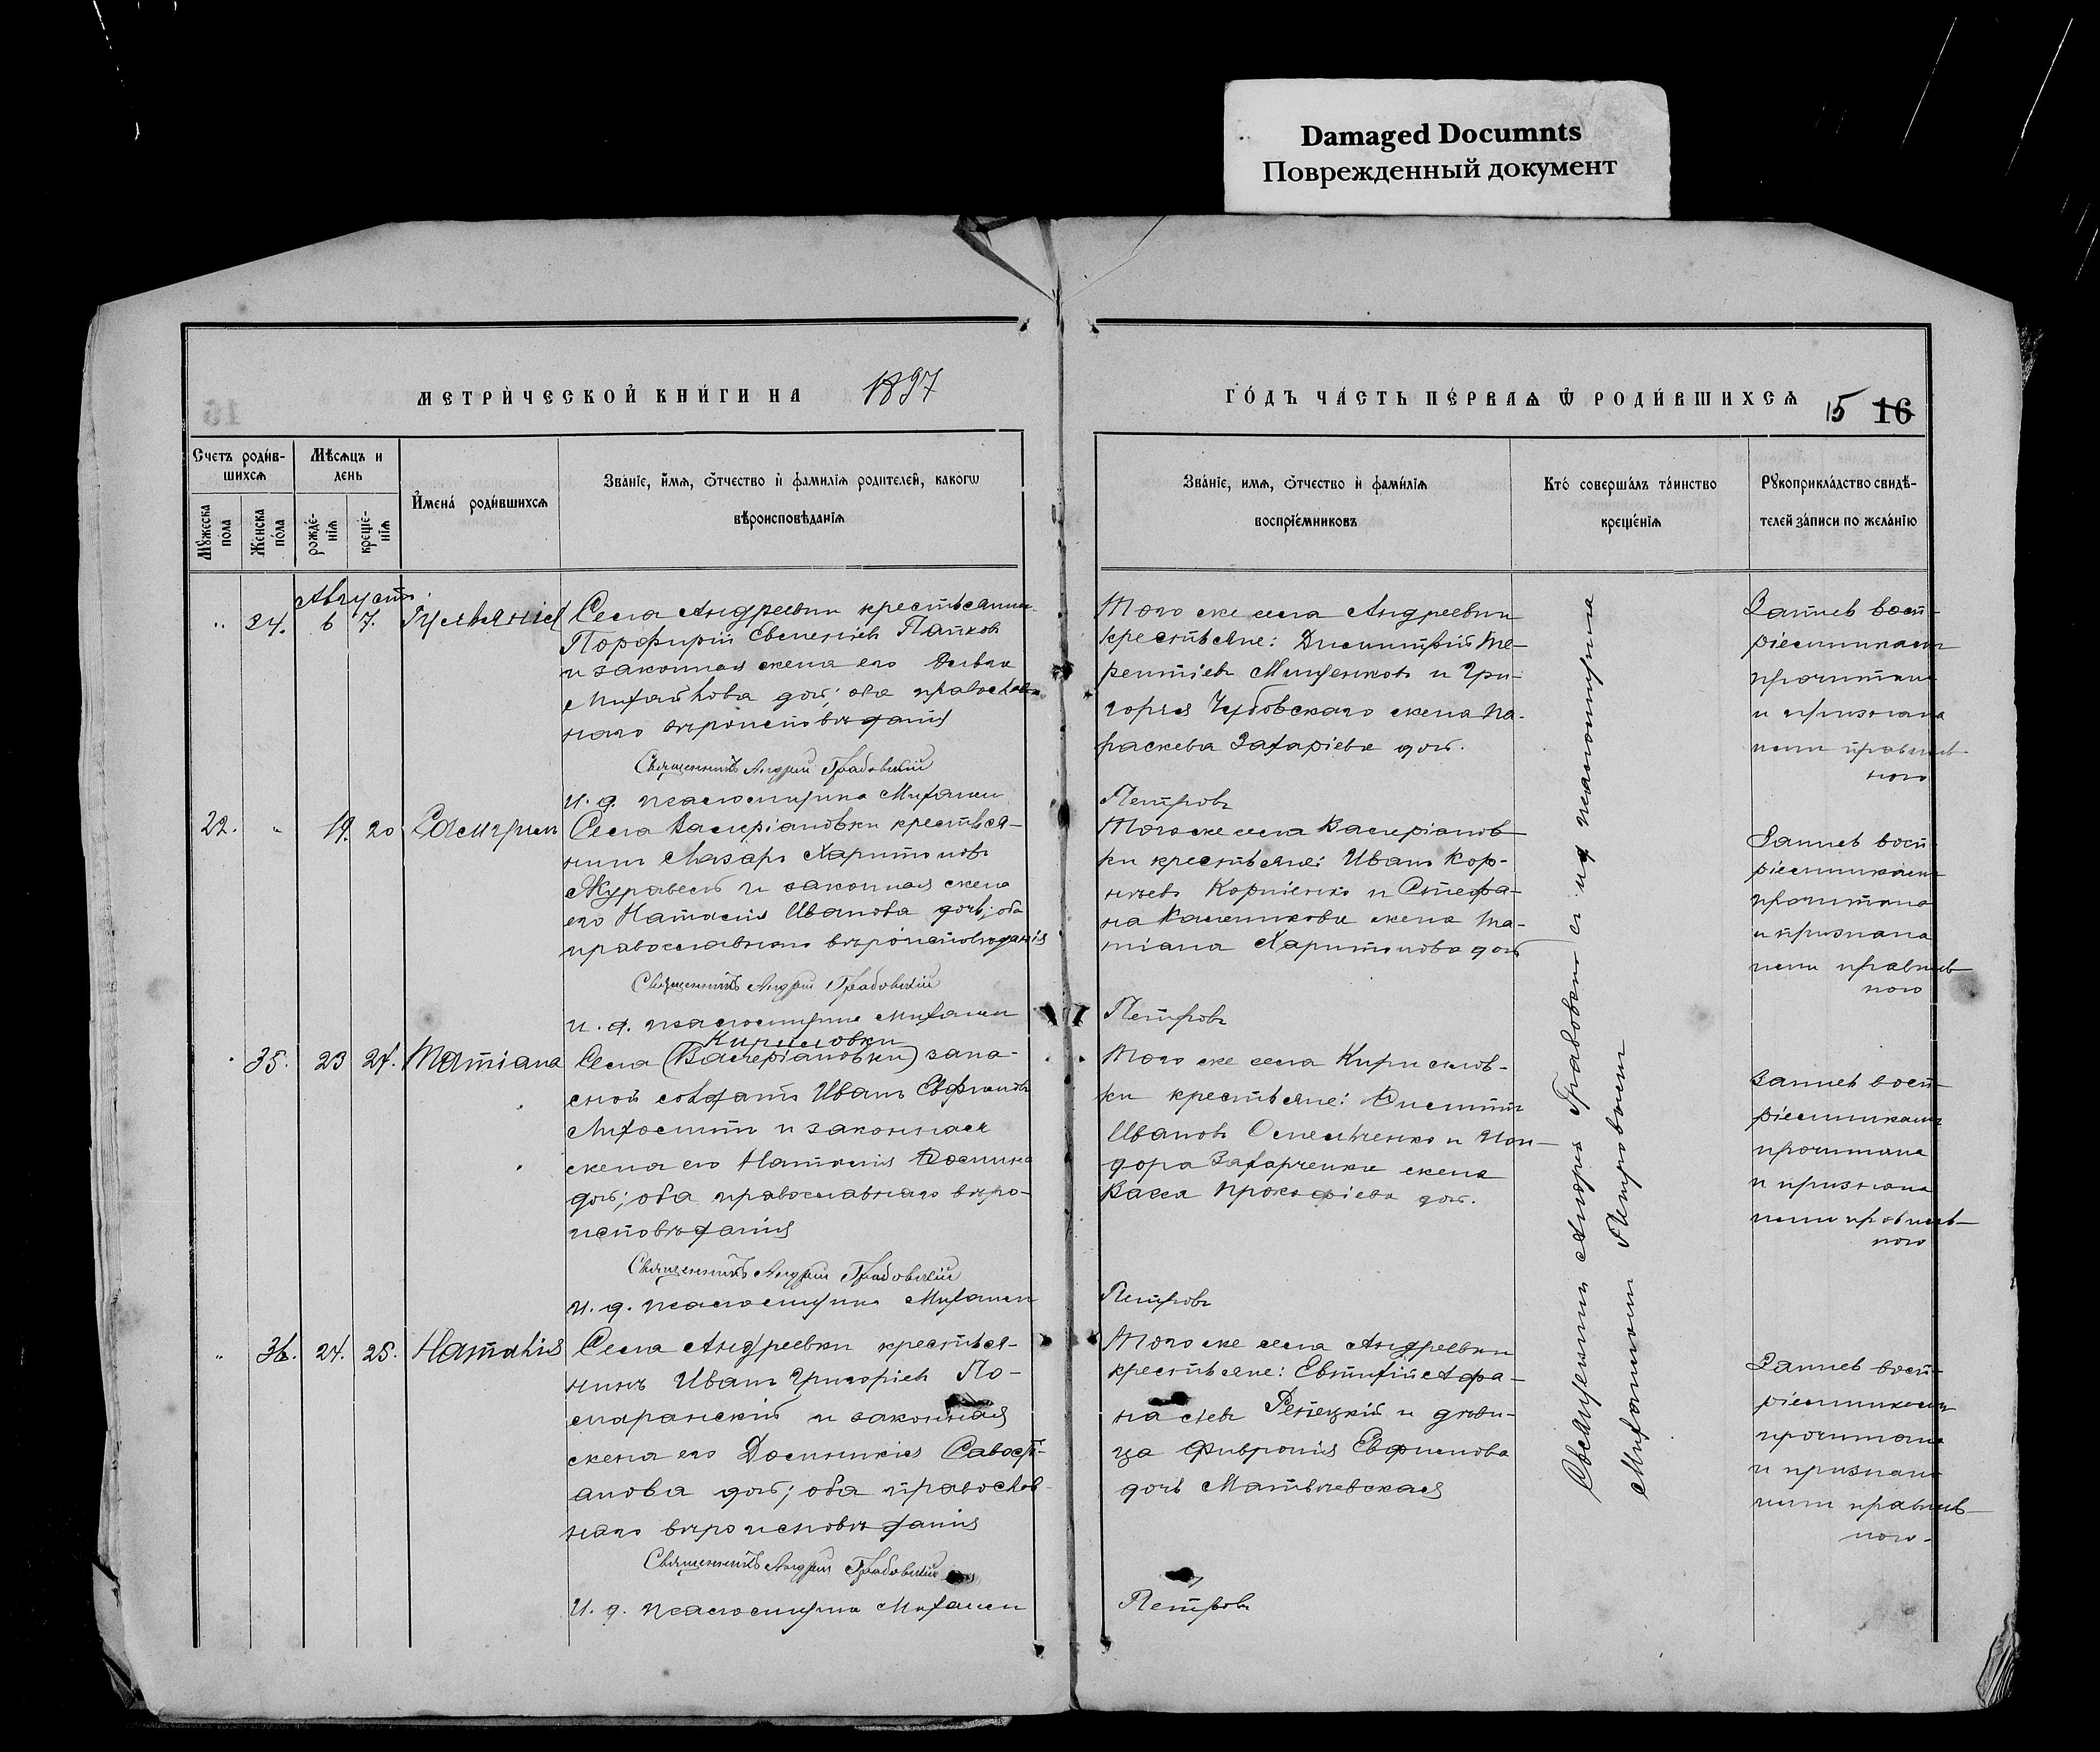 Damaged Documnts
Поврежденный документ
МЕТРИ́ЧЕСКОЙ КНИ́ГИ НА 1897
ГО́ДЪ ЧА́СТЬ ПЕ́РВАѦ Ѿ РОДИ́ВШИХСѦ 15 16
Счетъ роди́вшихсѧ
Мѣсѧцъ и день
И́мена́ роди́вшихсѧ
Зва́нїе, и́мѧ, ѻ́тчество и фамилїѧ родителей, какогѡ
вѣроисповѣданїѧ
Мꙋжеска пола
Женска пола
рожде́нїѧ
креще́нїѧ
Зва́нїе, имѧ, ѻ́тчество и фами́лїѧ
воспрїе́мниковъ
Кто́ соверша́лъ та́инство
креще́нїѧ
Рꙋкоприкла́дство свидѣ-
телей за́писи по жела́нїю
Августъ
24. 6 7. Гуліанія Села Андреевки крестьянинъ
Порфирій Евгеніевъ Папков
и законная жена его
Михайлова дочь; оба православ-
наго вѣроисповѣданія
Священникъ Андрей Грабовскій
И. д. псаломщика Михаилъ
Того же села Андреевки
крестьяне: Димитрій Те-
рентіевъ Мищенковъ и Гри-
горія Чубовскаго жена Па-
раскева Захаріева дочь.
Петровъ
Запись восп-
ріемникамъ
прочитана
и признана
ими правиль-
ною
22. 19. 20 Села Валеріановки крестья-
нинъ Лазарь Харитоновъ
Журавель и законная жена
его Наталія Иванова дочь; оба
православнаго вѣроисповѣданія
Священникъ Андрей Грабовскій
И. д. псаломщика Михаилъ
Того же села Валеріанов-
ки крестьяне: Иванъ Кор-
нѣевъ Корніенко и Стефа-
на Калетикова жена Та-
тіана Харитонова дочь
Петровъ
Запись восп-
ріемникамъ
прочитана
и признана
ими правиль-
ною
Кирилловки
35. 23 24. Татіана Села (Валеріановки) запа-
сной солдатъ Иванъ Евфимовъ
и законная
жена его Наталія
дочь; оба православнаго вѣро-
исповѣданія
Священникъ Андрей Грабовскій
И. д. псаломщика Михаилъ
Того же села Кириллов-
ки крестьяне:
Ивановъ Омельченко и Иси-
дора Захарченки жена
Васса Прокофіева дочь.
Петровъ
Запись восп-
ріемникамъ
прочитана
и признана
ими правиль-
ною
36. 24. 25. Наталія Села Андреевки крестья-
нинъ Иванъ Григоріевъ По-
маранскій и законная
жена его Домникія Савост-
анова дочь; оба православ-
наго вѣроисповѣданія
Священникъ Андрей Грабовскій
И. д. псаломщика Михаилъ
Того же села Андреевки
крестьяне: Евтихій Афа-
насіевъ Репецкій и дѣви-
ца Февронія Евфимова
дочь Матвѣевская
Петровъ
Запись восп-
ріемникамъ
прочитана
и признана
ими правиль-
ною.
Священникъ Андрей Грабовскій съ и д псаломщика
Михаиломъ Петровымъ